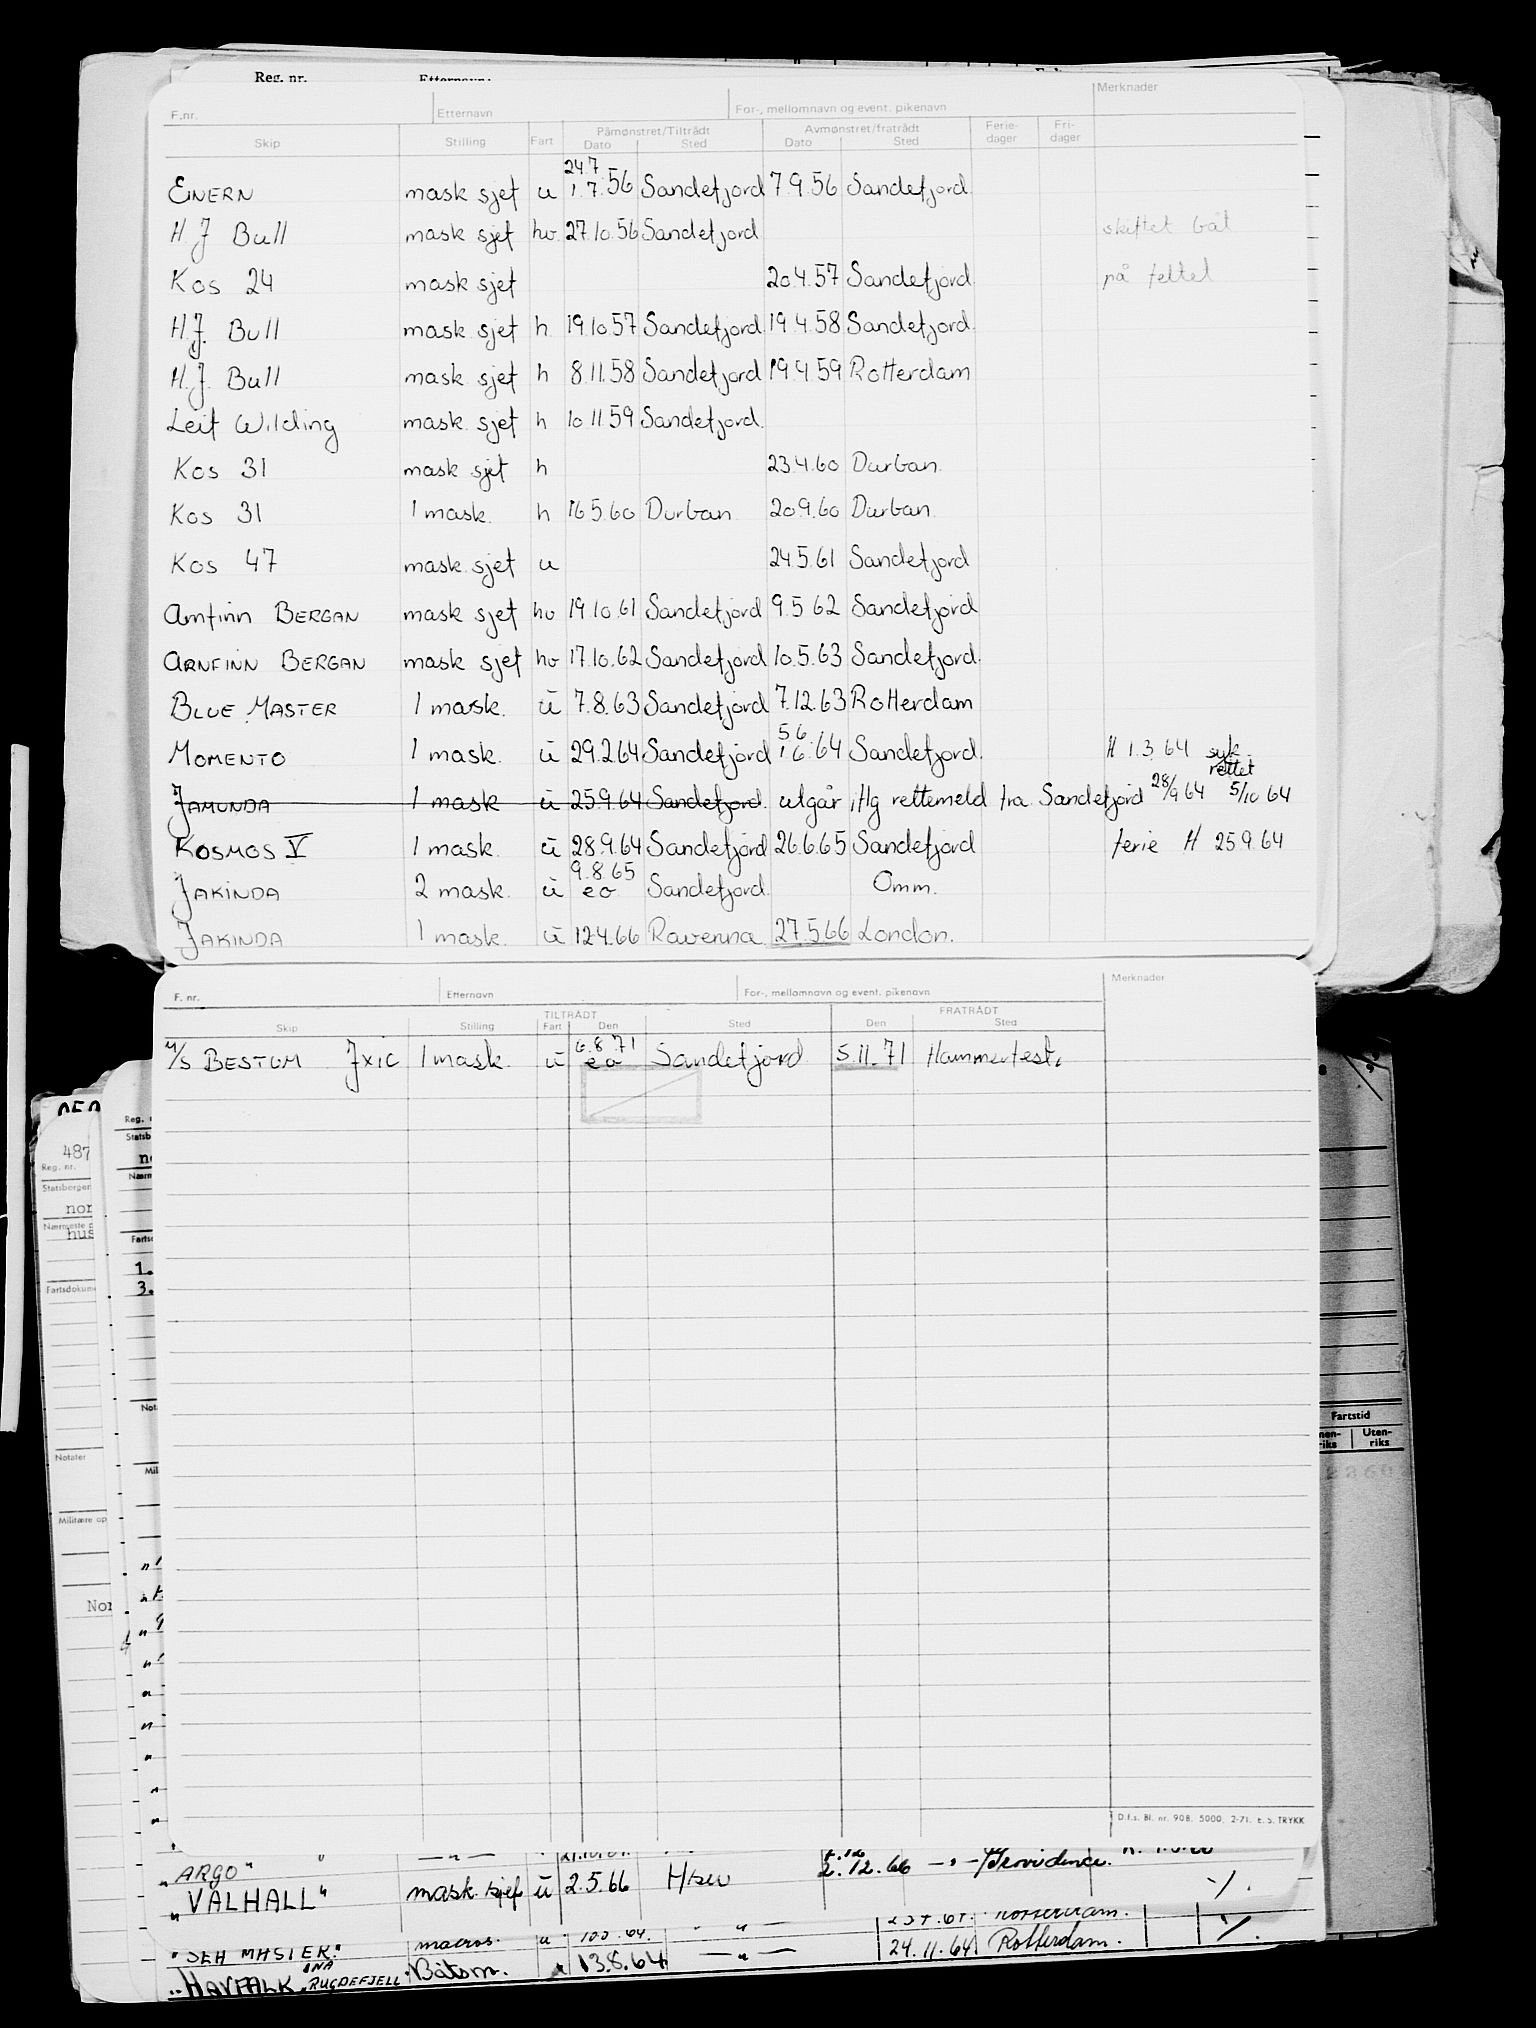 Reg. nr. Etternavn:
F.nr. Etternavn For-, mellomnavn og event. pikenavn Merknader
Skip Stilling Fart Påmønstret/Tiltrådt Dato Sted Avmønstret/fratrådt Dato Sted Ferie-dager Fri-dager
24.7
EINERN mask sjef u 1.7.56 Sandefjord 7.9.56 Sandefjord
H J Bull mask sjef hv. 27.10.56 Sandefjord skiftet båt
Kos 24 mask sjef 20.4.57 Sandefjord på feltet
H.J. Bull mask sjef h 19.10.57 Sandefjord 19.4.58 Sandefjord
H.J. Bull mask sjef h 8.11.58 Sandefjord 19.4.59 Rotterdam
Leif Wilding mask. sjef h 10.11.59 Sandefjord.
Kos 31 mask sjef h 23.4.60 Durban.
Kos 31 1 mask. h 16.5.60 Durban 20.9.60 Durban.
Kos 47 mask. sjef u 24.5.61 Sandefjord
Arnfinn BERGAN mask sjef hv 19.10.61 Sandefjord 9.5.62 Sandefjord
ARNFINN BERGAN mask sjef hv 17.10.62 Sandefjord 10.5.63 Sandefjord.
BLUE MASTER 1 mask. ū 7.8.63 Sandefjord 7.12.63 Rotterdam
5 6
MOMENTO 1 mask. ū 29.2.64 Sandefjord 1.6.64 Sandefjord. H 1.3.64 syk.
rettet
JAMUNDA 1 mask ū 25.9.64 Sandefjord. utgår iflg rettemeld fra Sandefjord 28/9 64 5/10 64
KOSMOS V 1 mask. ū 28.9.64 Sandefjord 26.6.65 Sandefjord ferie H 25.9.64
9.8.65
JAKINDA 2 mask. ū eo Sandefjord. Omm.
JAKINDA 1 mask. ū 12.4.66 Ravenna 27.5.66 London.
F. nr. Etternavn For-, mellomnavn og event. pikenavn Merknader
TILTRÅDT FRATRÅDT
Skip Stilling Fart Den Sted Den Sted
6.8.71
M/S BESTUM JXIC 1 mask. ū eo Sandefjord 5.11.71 Hammerfest.
487
Reg. nr.
Statsborger
nor
Nærmeste
hus
Fartsdokum
Notater
Militære op
Nor
Reg.
Statsb
Nærm
Fartsd
1.
3.
Not
Mil
Fartstid
Uten-riks
D.f.s. Bl. nr. 908. 5000. 2-71. E. S. TRYKK
"ARGO"
"VALHALL" mask. sjef ū 2.5.66 2.12.66 Providence.
"SEA MASTER" Rotterdam.
"HAVFALK RUGDEFJELL Båtsm. 13.8.64 24.11.64 Rotterdam.